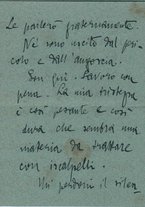 Le parlerò fraternamente.
Nè sono uscito dal peri-
colo e dall'angoscia.
Son qui. Lavoro con
pena. La mia strategia
è così pesante e così
dura che sembra una
materia da trattare
con scalpelli.
Mi perdoni il ritar